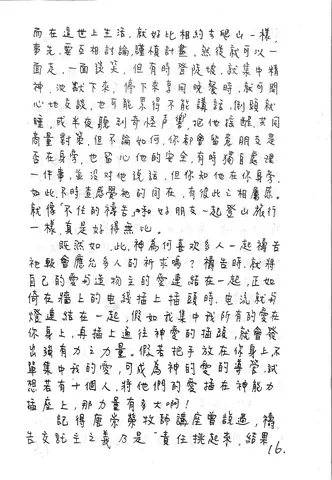 而在這世上生活,就好比相約去爬山一樣,
事先要互相討論,謹慎計畫,然後就可以一
面走,一面談笑,但有時登陡坡,就集中精
神,沈默下來,停下來享用晚餐時,就可開
心地交談,也可能累得不能講話,倒頭就
睡,或半夜聽到奇怪聲響,把他搖醒,共同
商量對策,但不論如何,你都會留意朋友是
否在身旁,也留心他的安全,有時獨自處理
一件事,並沒對他說話,但你知他在你身旁,
如此,不時查感覺祂的同在,有彼此之相屬感。
就像"不住的禱告"和好朋友一起登山旅行
一樣,真是好得無比。
既然如此,神為何喜歡多人一起禱告
祂較會應允多人的祈求嗎?禱告時,就將
自己的愛与造物主的愛連結在一起,正如
倚在牆上的电线插上插頭時,电流就与
燈連結在一起,假如我集中我所有的愛在
你身上,再插上通往神愛的插頭,就會發
出強有力之力量。假若把手放在你身上,不
單集中我的愛,可成為神的愛的導管,試
想若有十個人,將他們的愛插在神能力
插座上,那力量有多大啊!
記得唐崇榮牧師講座曾說過,禱
告交託主之義乃是"責任挑起來,結果
16.